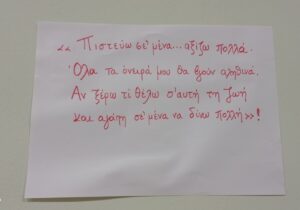 «Πιστεύω σε μένα... αξίζω πολλά.
Όλα τα όνειρά μου θα βγουν αληθινά.
Αν ξέρω τί θέλω σ'αυτή τη ζωή
και αγάπη σε μένα να δίνω πολλή»!